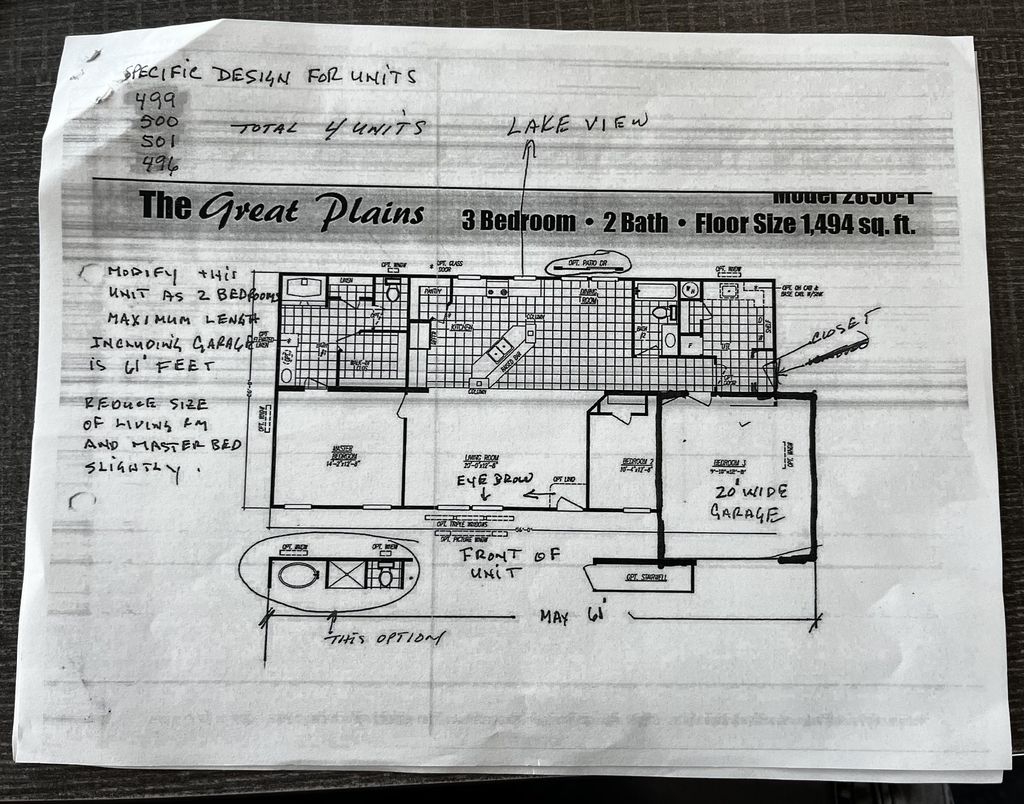 SPECIFIC DESIGN FOR UNITS
499
500
501
496
TOTAL 4 UNITS
LAKE VIEW
The Great Plains
3 Bedroom • 2 Bath • Floor Size 1,494 sq. ft.
MODIFY THIS
UNIT AS 2 BEDROOMS
MAXIMUM LENGTH
INCLUDING GARAGE
IS 61' FEET
REDUCE SIZE
OF LIVING RM
AND MASTER BED
SLIGHTLY.
OPT. GLASS
DOOR
OPT. PATIO DR
LINEN
PANTRY
KITCHEN
COLUMN
DINING
ROOM
COLUMN
CLOSET
MASTER
BEDROOM
14'-2"x12'-8"
LIVING ROOM
20'-0"x12'-8"
EYE BROW
BEDROOM 2
10'-4"x12'-8"
BEDROOM 3
9'-10"x12'-8"
20' WIDE
GARAGE
OPT. TRIPLE WINDOWS
OPT. PICTURE WINDOW
FRONT OF
UNIT
OPT. STAIRWELL
MAX 61'
THIS OPTION